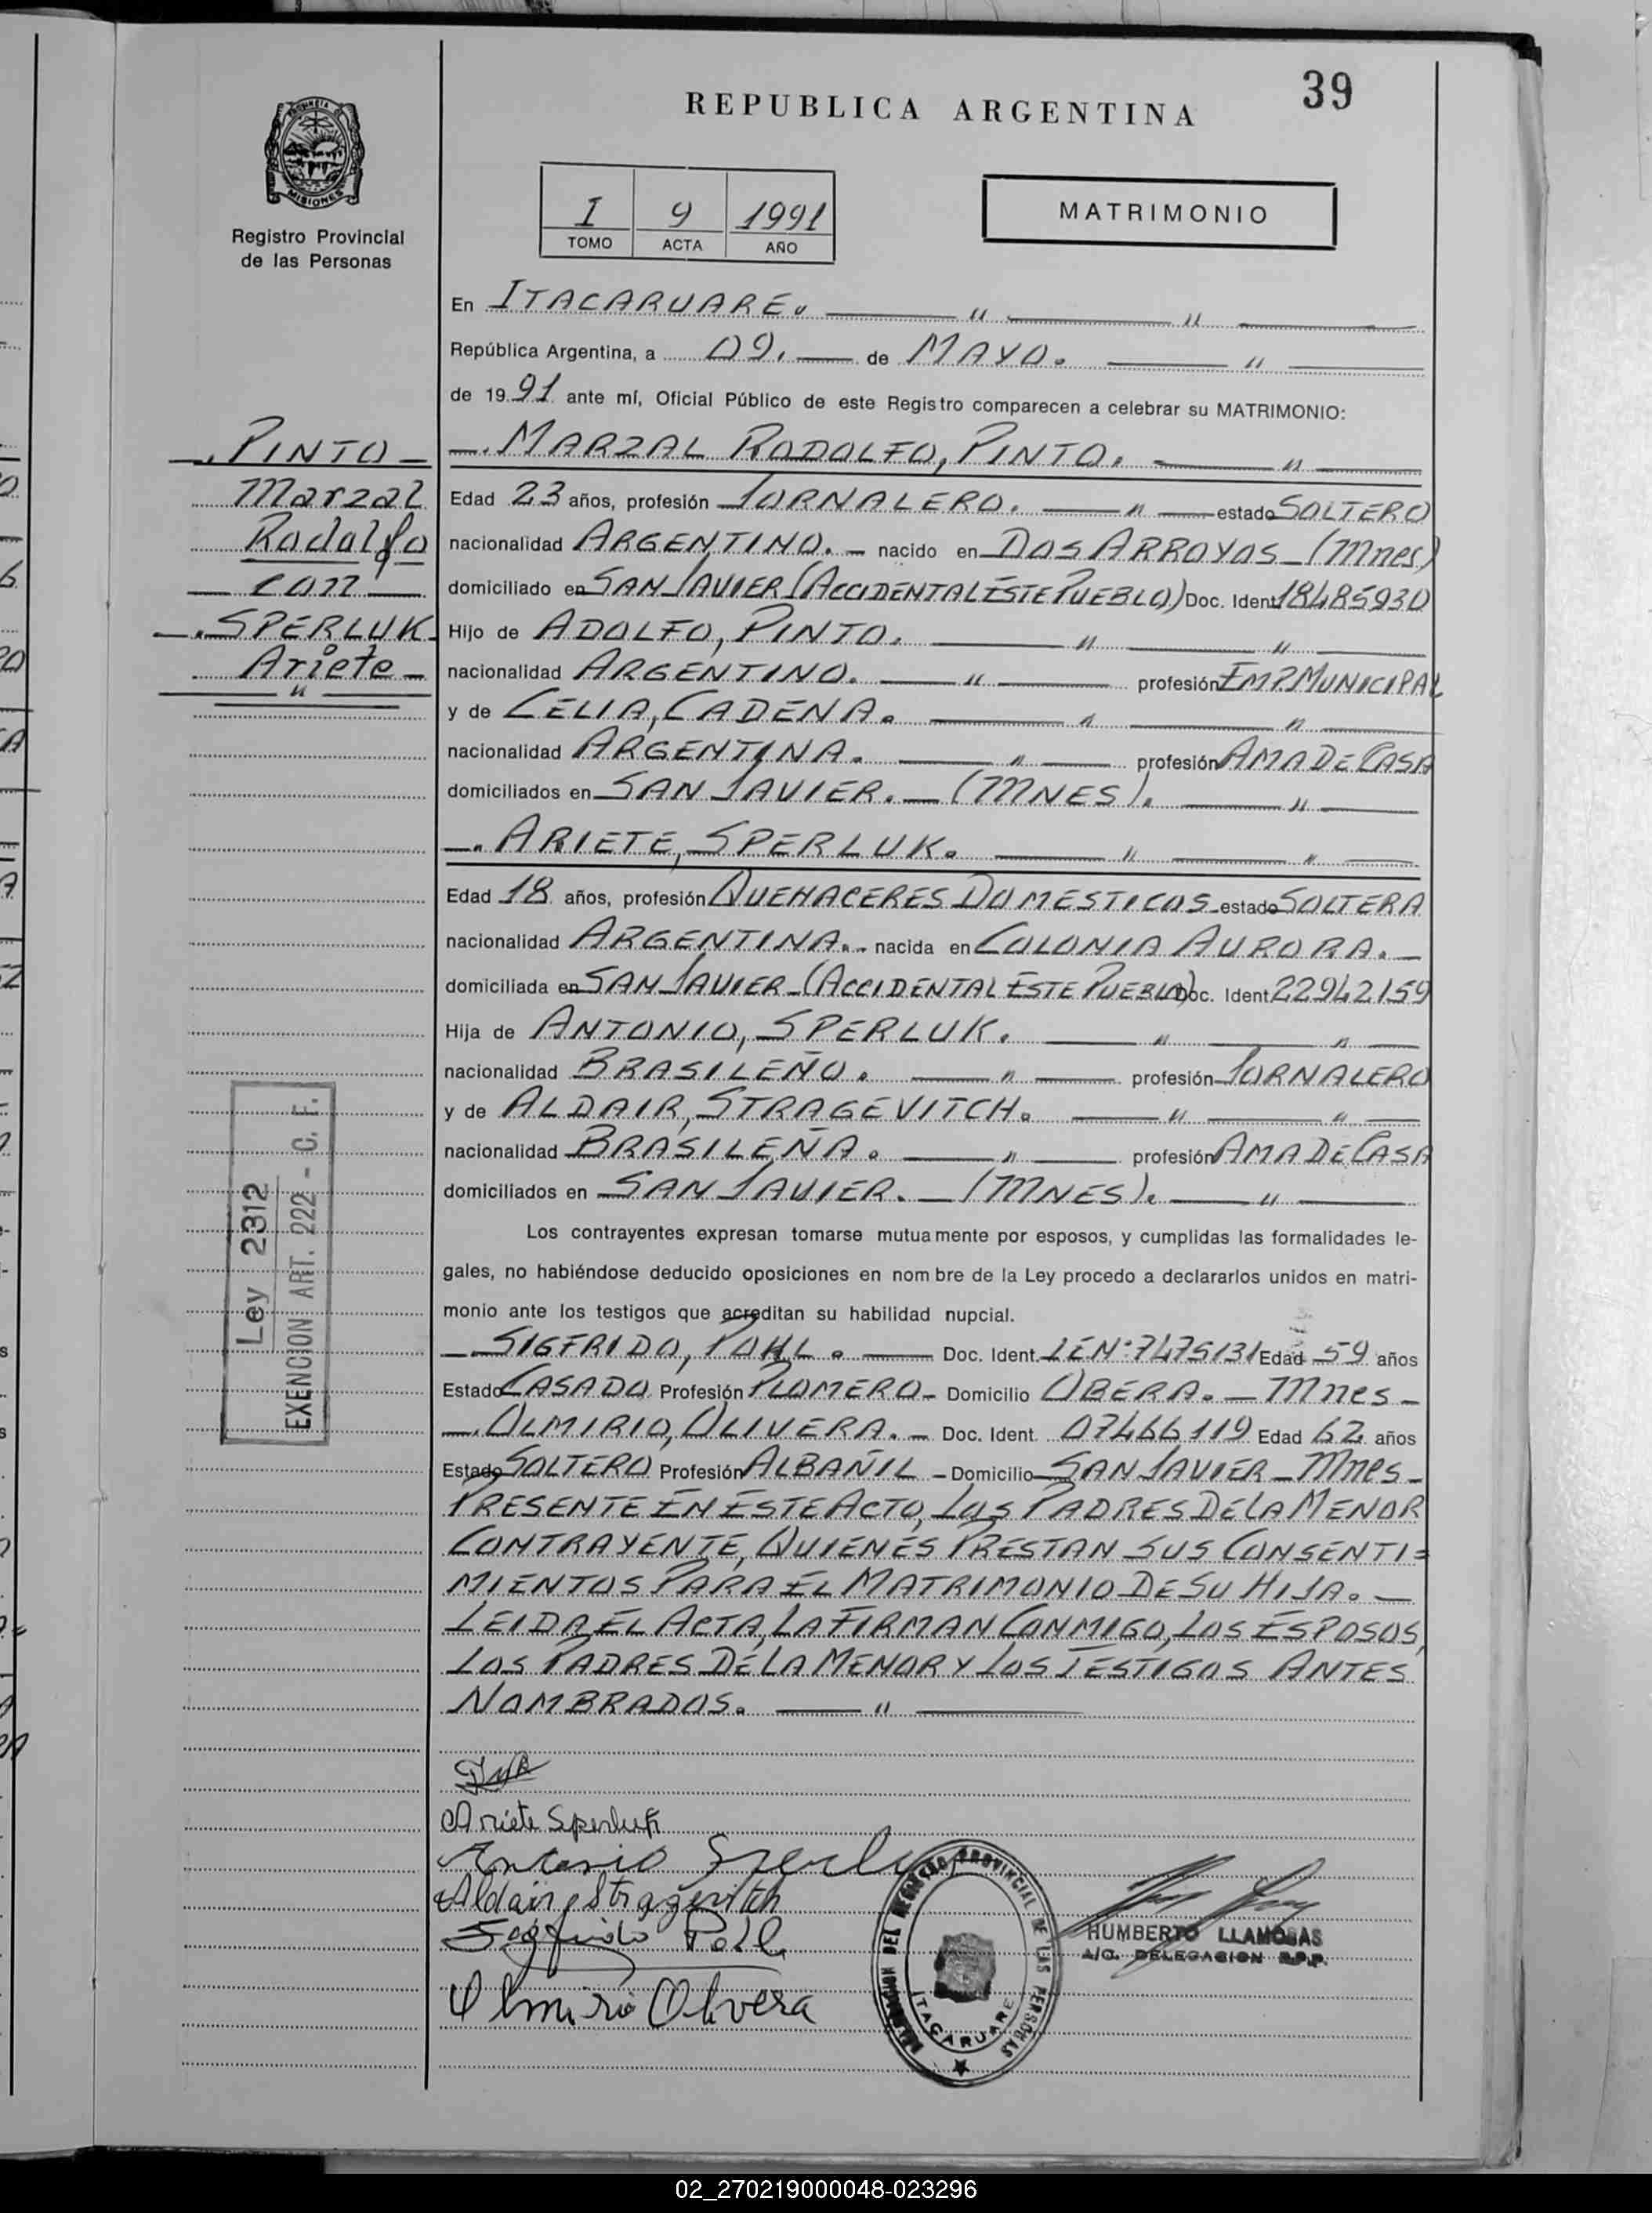 39
REPUBLICA ARGENTINA
PROVINCIA
MISIONES
Registro Provincial
de las Personas
I 9 1991
TOMO ACTA AÑO
MATRIMONIO
En ITACARUARE. — " — " —
República Argentina, a 09. — de MAYO. — " —
de 1991 ante mí, Oficial Público de este Registro comparecen a celebrar su MATRIMONIO:
—. PINTO —
Marzal
Rodolfo
— con —
—. SPERLUK
Ariete —
— " —
—. MARZAL RODOLFO, PINTO. — " —
Edad 23 años, profesión JORNALERO. — " — estado SOLTERO
nacionalidad ARGENTINO. — nacido en DOS ARROYOS — (Mnes)
domiciliado en SAN JAVIER (ACCIDENTAL ESTE PUEBLO) Doc. Ident 18485930
Hijo de ADOLFO, PINTO. — " — " —
nacionalidad ARGENTINO. — " — profesión EMP. MUNICIPAL
y de CELIA, CADENA. — " — " —
nacionalidad ARGENTINA. — " — profesión AMA DE CASA
domiciliados en SAN JAVIER. — (MNES). — " —
—. ARIETE, SPERLUK. — " — " —
Edad 18 años, profesión QUEHACERES DOMESTICOS estado SOLTERA
nacionalidad ARGENTINA. - nacida en COLONIA AURORA. —
domiciliada en SAN JAVIER — (ACCIDENTAL ESTE PUEBLO) Doc. Ident 22942159
Hija de ANTONIO, SPERLUK. — " — " —
nacionalidad BRASILEÑO. — " — profesión JORNALERO
y de ALDAIR, STRAGEVITCH. — " — " —
nacionalidad BRASILEÑA. — " — profesión AMA DE CASA
domiciliados en SAN JAVIER. — (MNES). — " —
Los contrayentes expresan tomarse mutuamente por esposos, y cumplidas las formalidades le-
gales, no habiéndose deducido oposiciones en nombre de la Ley procedo a declararlos unidos en matri-
monio ante los testigos que acreditan su habilidad nupcial.
Ley 2312
EXENCION ART. 222 - C. F.
—. SIGFRIDO, POHL. — Doc. Ident. LE Nº 7475131 Edad 59 años
Estado CASADO Profesión PLOMERO — Domicilio OBERA. — Mnes —
—. OLMIRIO, OLIVERA. — Doc. Ident. 07466119 Edad 62 años
Estado SOLTERO Profesión ALBAÑIL — Domicilio SAN JAVIER — Mnes —
PRESENTE EN ESTE ACTO, LOS PADRES DE LA MENOR
CONTRAYENTE, QUIENES PRESTAN SUS CONSENTI=
MIENTOS PARA EL MATRIMONIO DE SU HIJA. —
LEIDA EL ACTA, LA FIRMAN CONMIGO, LOS ESPOSOS,
LOS PADRES DE LA MENOR Y LOS TESTIGOS ANTES
NOMBRADOS. — " —
Ariete Sperluk
Antonio Sperluk
Aldair Stragevitch
Segfrido Pohl
Olmirio Olivera
DELEGACION DEL REGISTRO PROVINCIAL DE LAS PERSONAS
ITACARUARE
HUMBERTO LLAMOSAS
A/C. DELEGACION R.P.P.
02_270219000048-023296